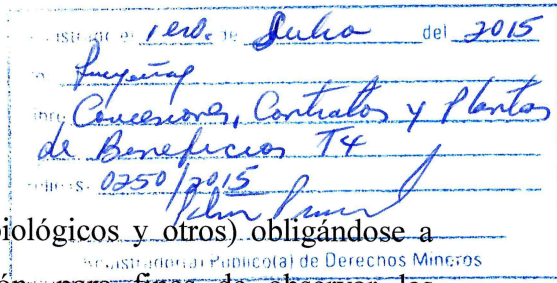 1ero. de Julio del 2015
Concesiones, Contratos y Plantas
de Beneficios T4
0250/2015
biológicos y otros) obligándose a
Registrador(a) Público(a) de Derechos Mineros
para fines de observar las